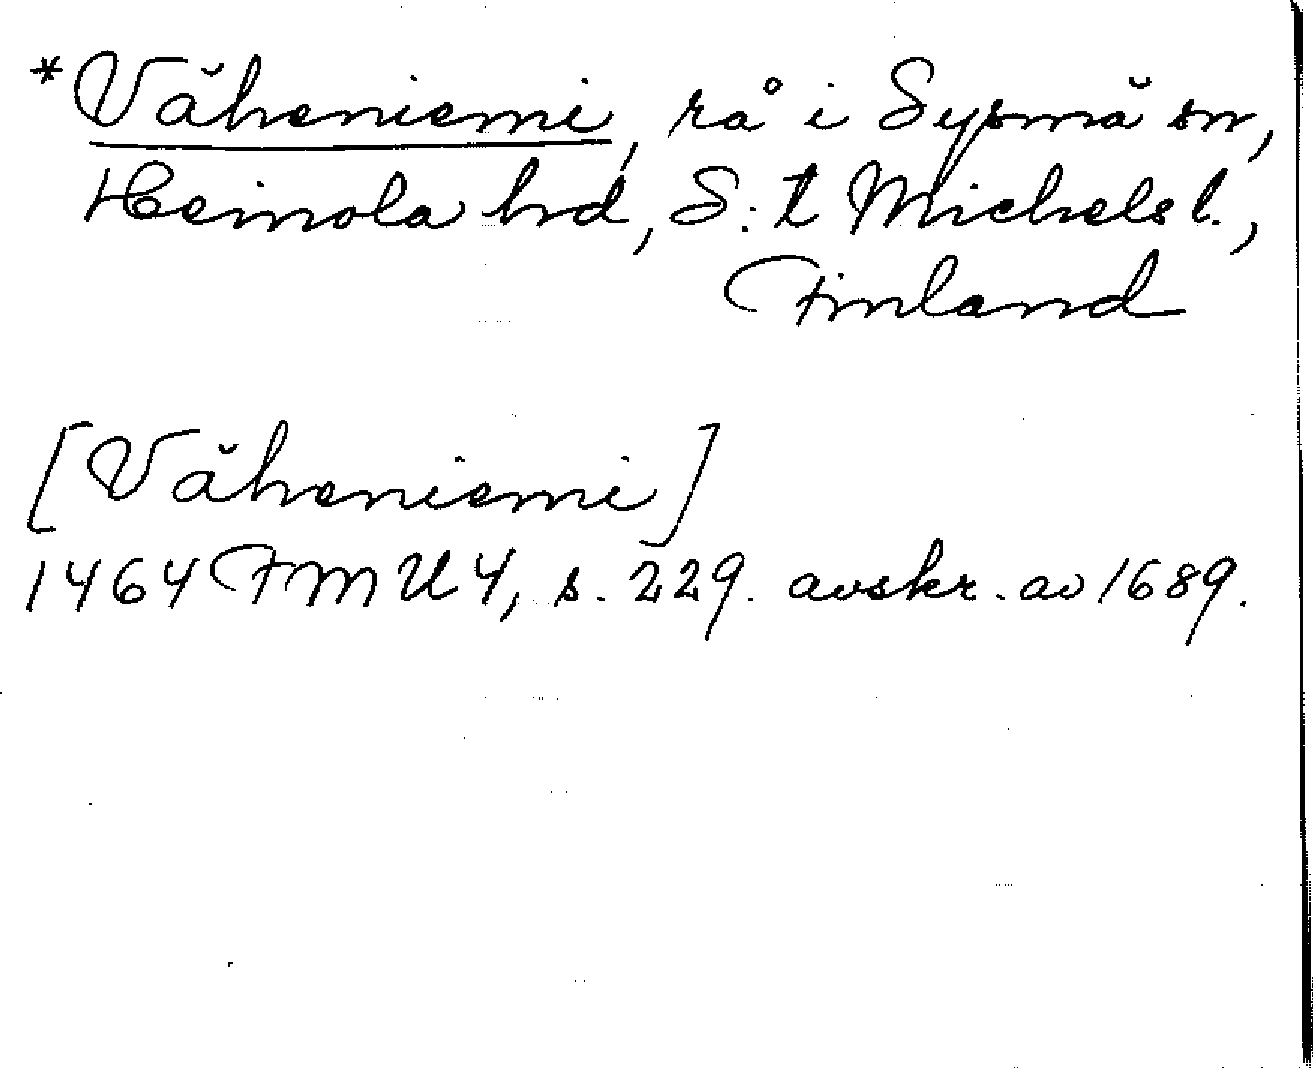 *Väheniemi, rå i Sysmä sn,
Heinola hd, S:t Michels l.,
Finland
[Väheniemi]
1464 FMU 4, s. 229. avskr. av 1689.